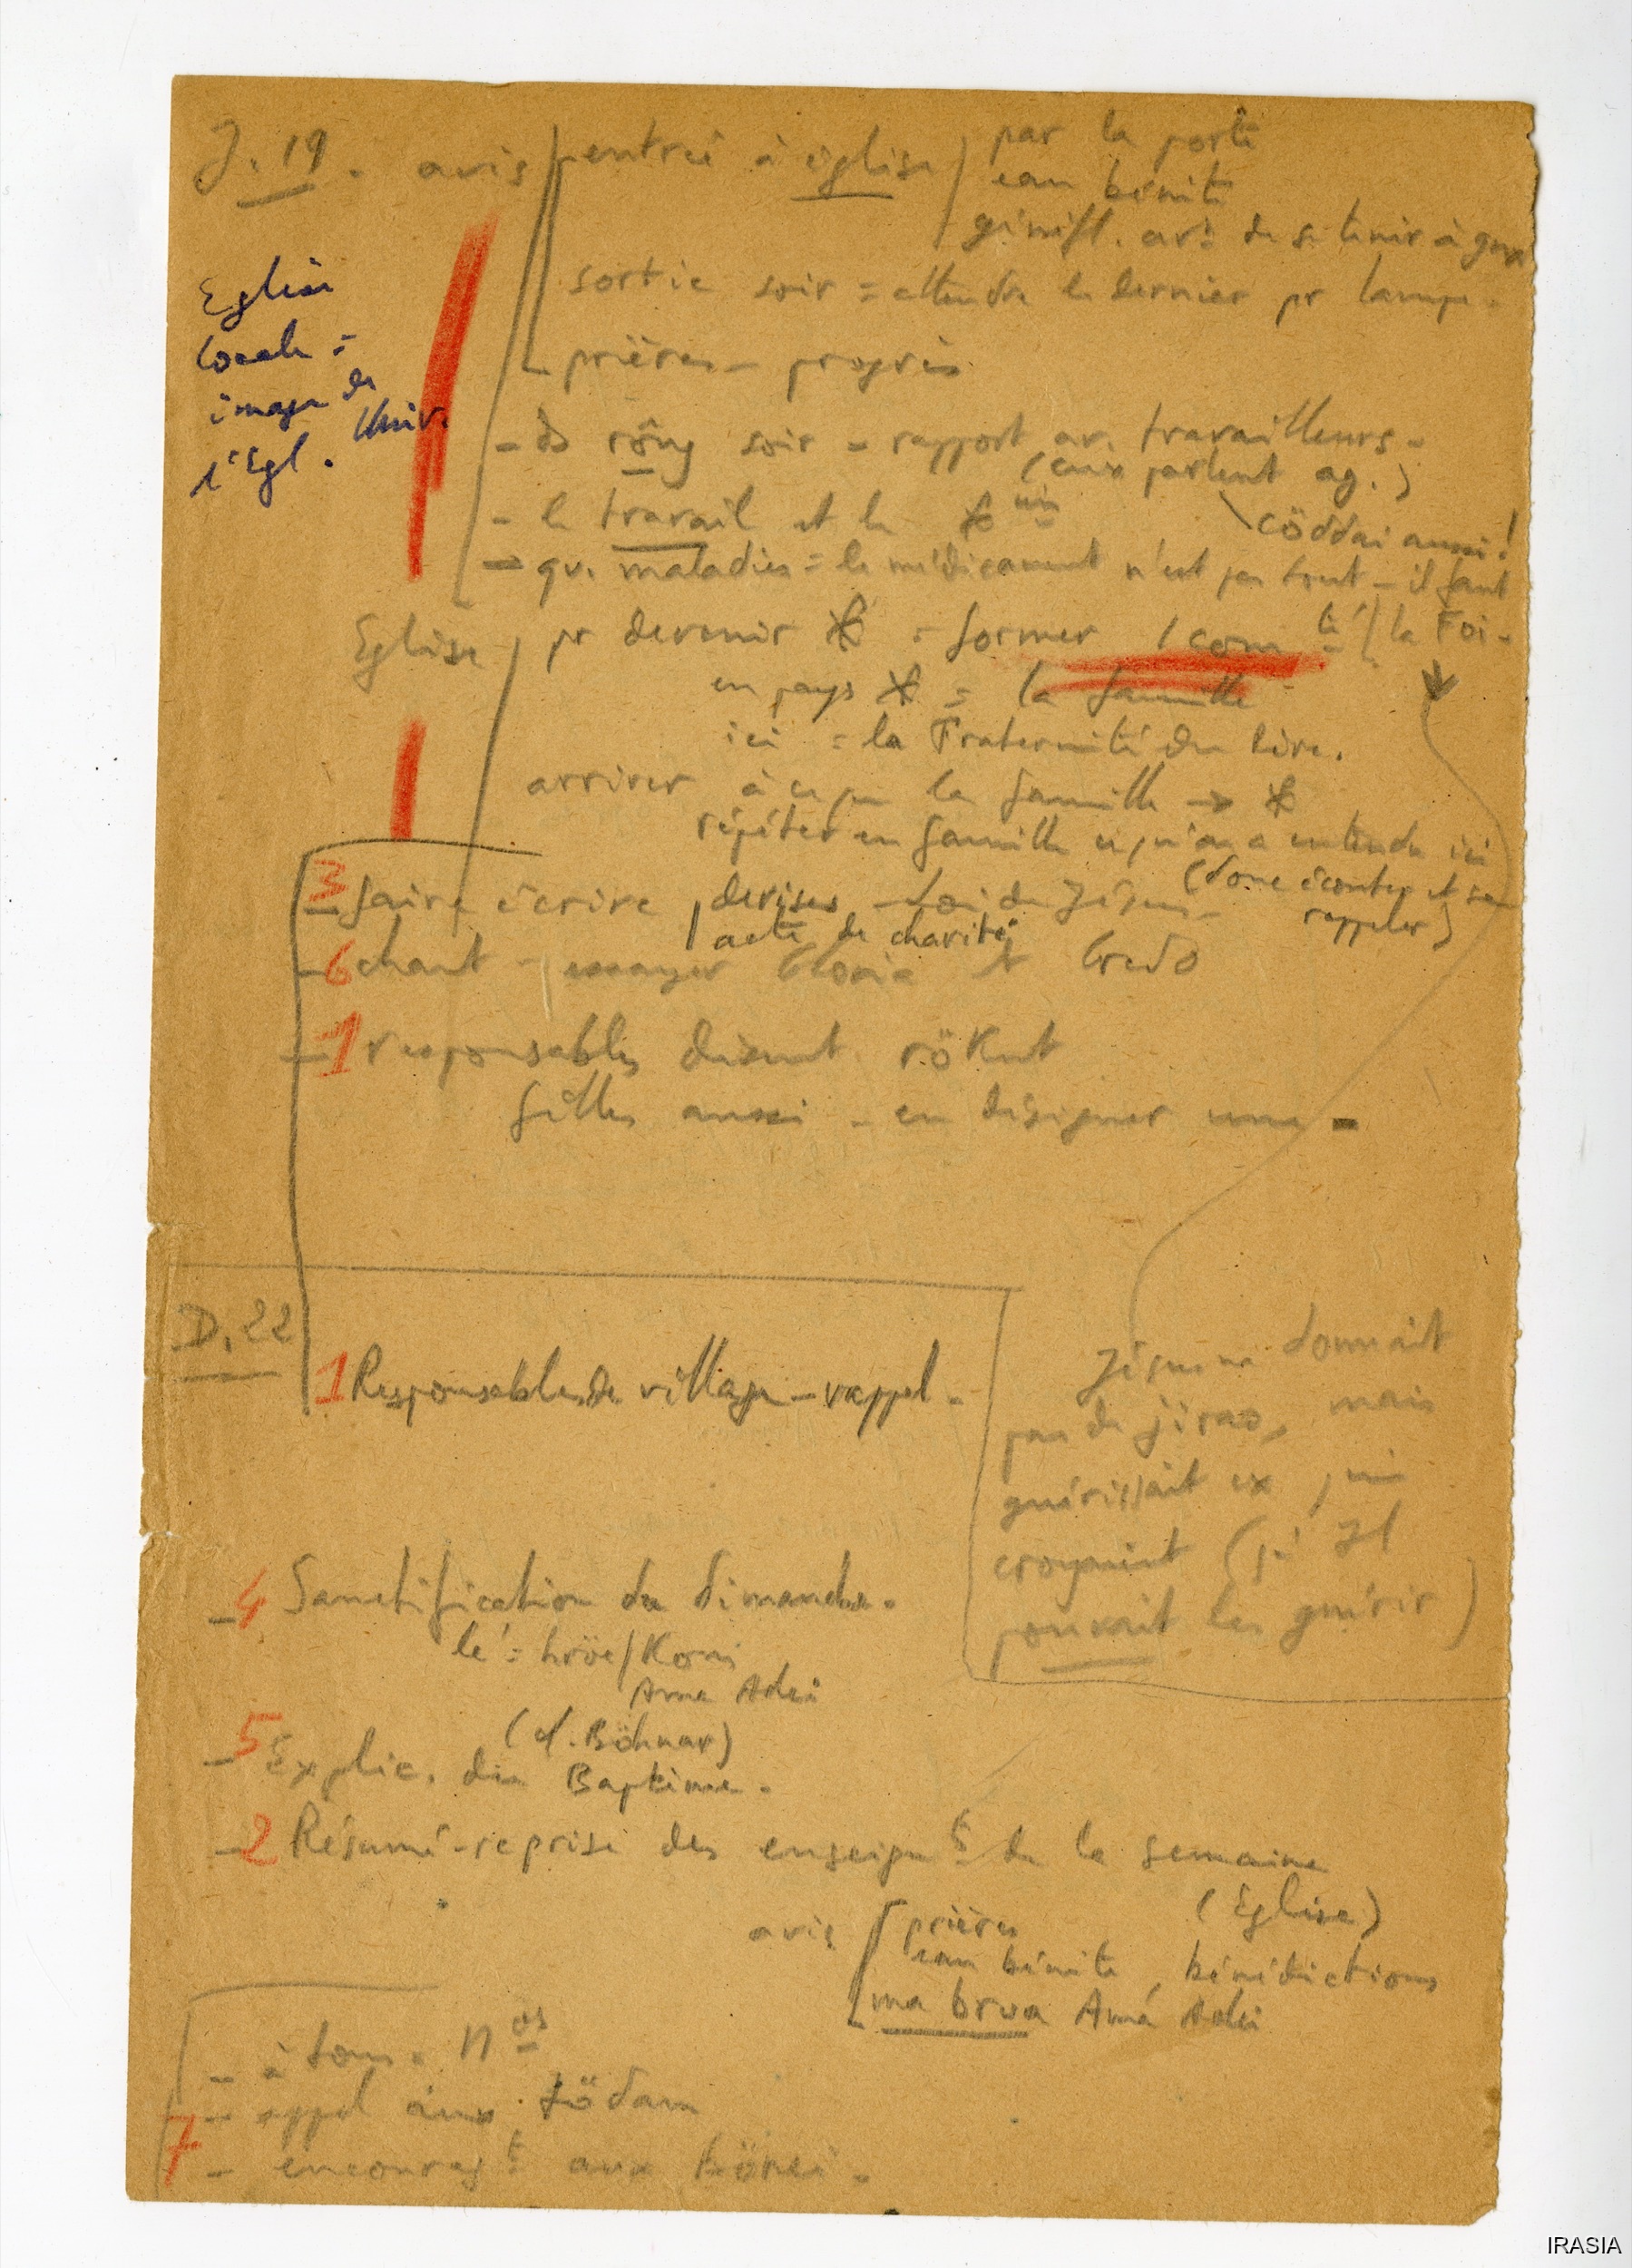 J. 19. avis / entrée à église / par la porte
eau bénite
génufl. avt de se tenir à gnx
sortie soir = attendre le dernier pr lampe.
prières - progrès.
Eglise
locale =
image de
l'Egl. Univ.
- ds rông soir = rapport av. travailleurs.
(eux parlent ag.)
cöddai aussi!
- le travail et le
- qq. maladies = le médicament n'est pas tout - il faut
la Foi -
Eglise / pr devenir = former 1 comté
en pays = la famille
ici = la Fraternité du Père.
arriver à ce que la famille →
répéter en famille ce qu'on a entendu ici
(donc écouter et se
rappeler)
3 - faire écrire / devises - Loi de Jésus -
acte de charité
- 6 chant - essayer Gloria et Credo
- 1 responsables disent rökut
filles aussi - en désigner une -
D. 22
1 Responsables de village - rappel -
Jésus ne donnait
pas de jirao, mais
guérissait ceux qui
croyaient (qu'Il
pouvait les guérir)
- 4 Sanctification du dimanche.
lé = hröe / Kom
Ama Adei
(cf. Böhnar)
- 5 Explic. du Baptême.
- 2 Résumé-reprise des enseignts de la semaine
(Eglise)
avis prières
eau bénite, bénédictions
ma brua Amá Adei
- à tous = nos
- appel aux tödam
7 - encouragt aux